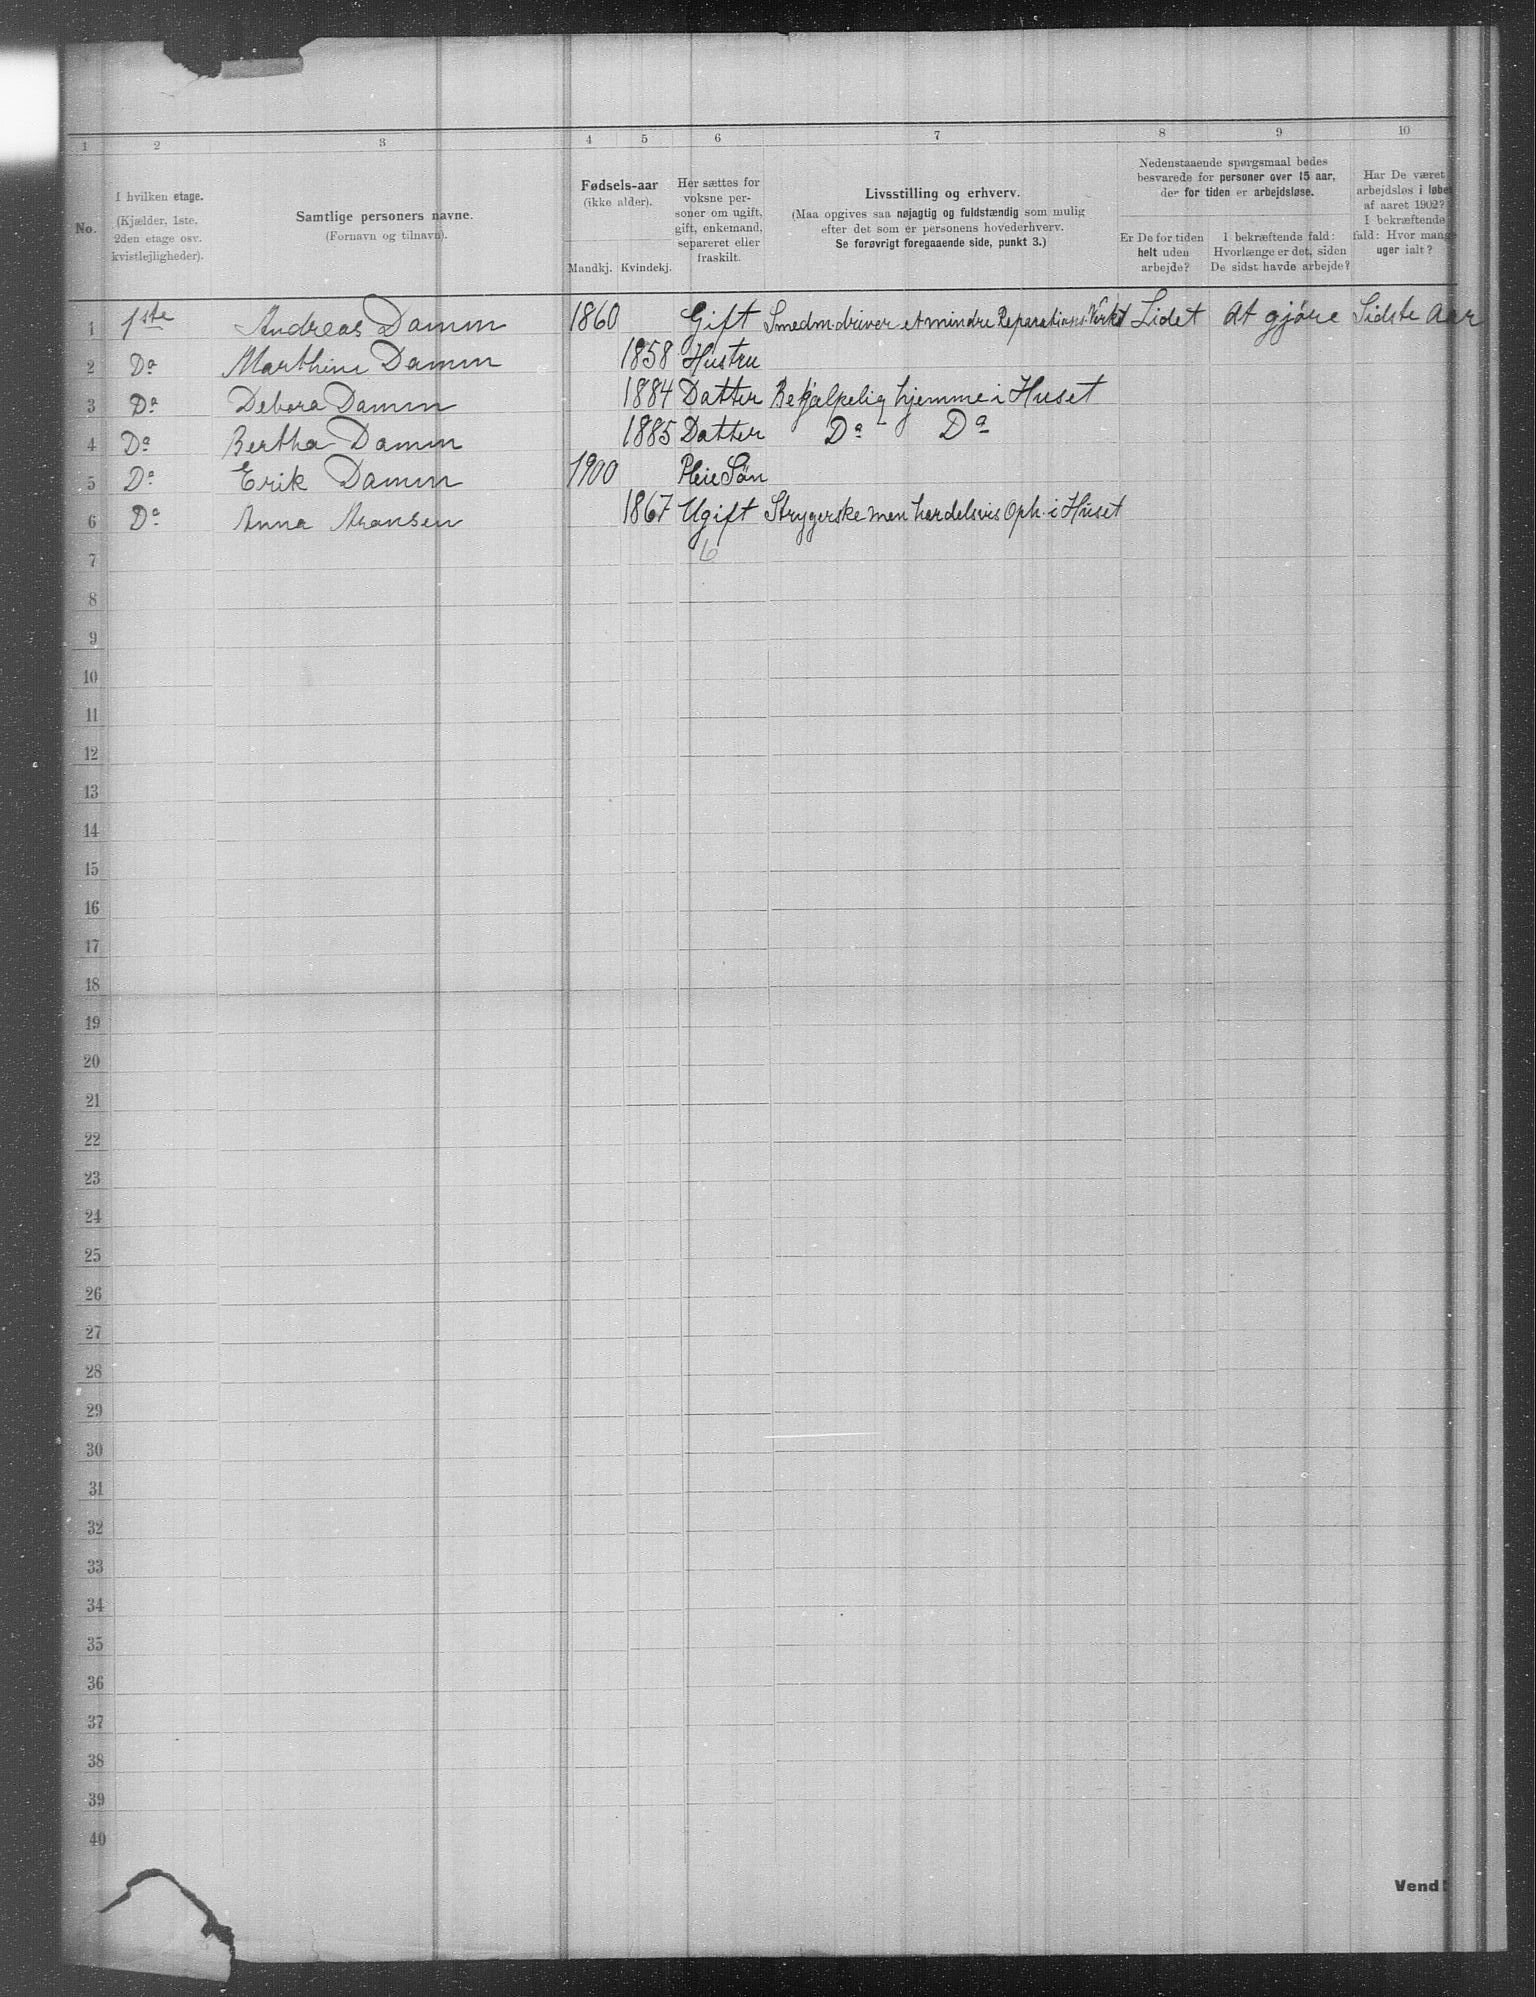 1 2 3 4 5 6 7 8 9 10
No.
I hvilken etage.
(Kjælder, 1ste.
2den etage osv.
kvistlejligheder).
Samtlige personers navne.
(Fornavn og tilnavn).
Fødsels-aar
(ikke alder).
Mandkj. Kvindekj.
Her sættes for
voksne per-
soner om ugift,
gift, enkemand,
separeret eller
fraskilt.
Livsstilling og erhverv.
(Maa opgives saa nøjagtig og fuldstændig som mulig
efter det som er personens hovederhverv.
Se forøvrigt foregaaende side, punkt 3.)
Nedenstaaende spørgsmaal bedes
besvarede for personer over 15 aar,
der for tiden er arbejdsløse.
Er De for tiden
helt uden
arbejde?
I bekræftende fald:
Hvorlænge er det, siden
De sidst havde arbejde?
Har De været
arbejdsløs i løbet
af aaret 1902?
I bekræftende
fald: Hvor mange
uger ialt?
1 1ste Andreas Damm 1860 Gift Smedm. driver et mindre Reparations-Verkst Lidet At gjöre Sidste Aar
2 Do Marthine Damm 1858 Hustru
3 Do Debora Damm 1884 Datter Behjælpelig hjemme i Huset
4 Do Bertha Damm 1885 Datter Do Do
5 Do Erik Damm 1900 Pleie Sön
6 Do Anna Aransen 1867 Ugift Strygerske men hardelsvis Oph. i Huset
7 6
8
9
10
11
12
13
14
15
16
17
18
19
20
21
22
23
24
25
26
27
28
29
30
31
32
33
34
35
36
37
38
39
40
Vend!